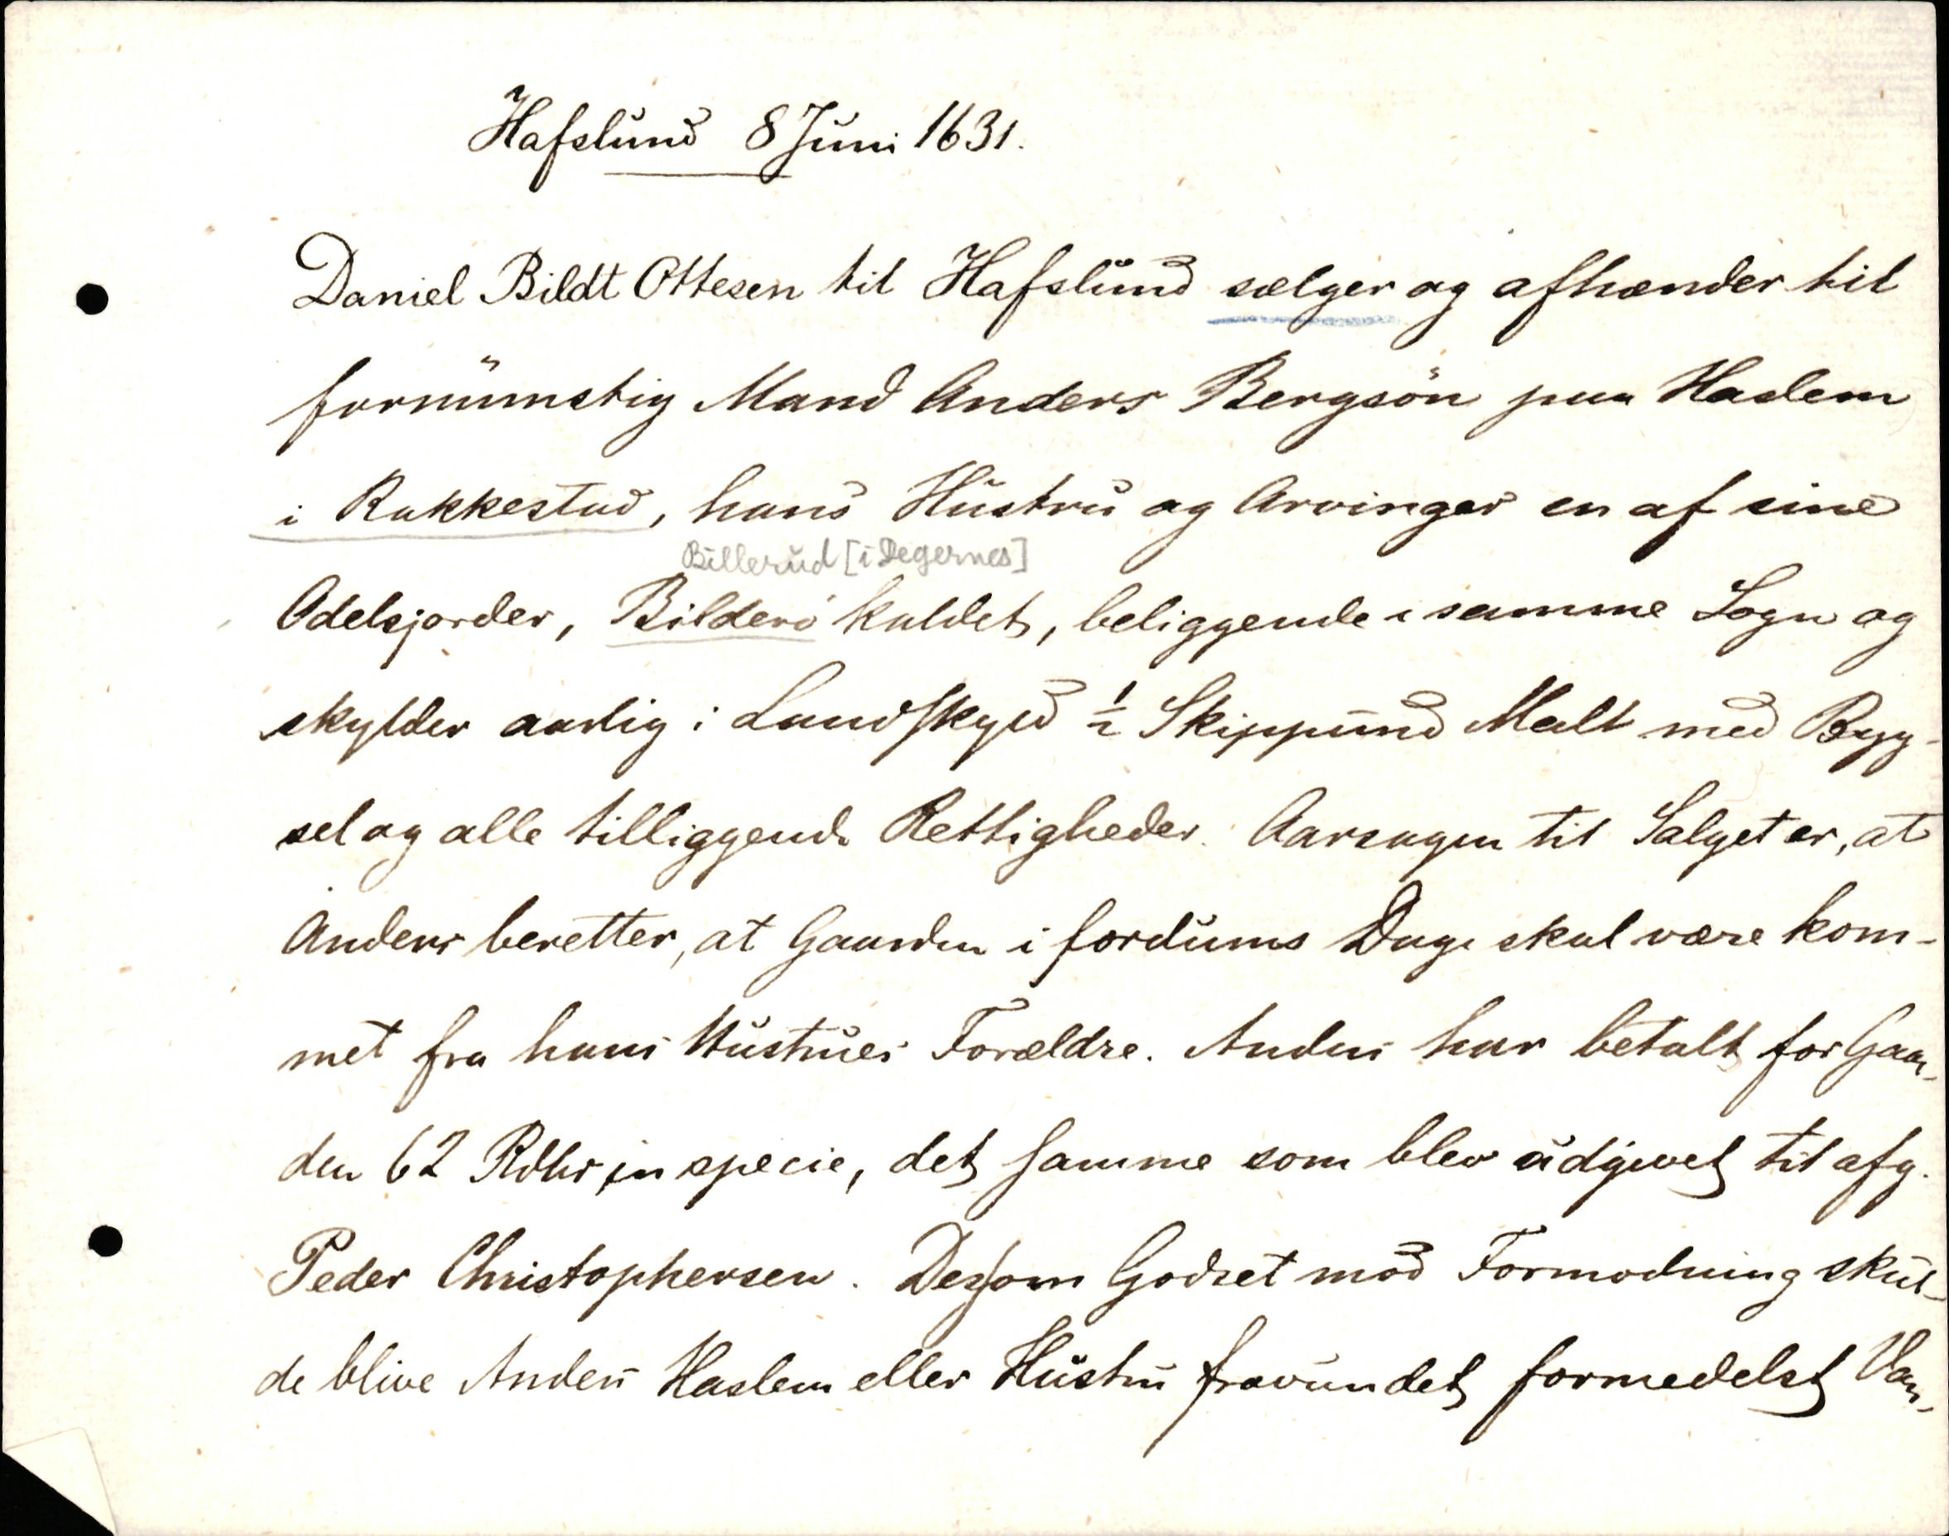 Hafslund 8 Juni 1631.
Daniel Bildt Ottesen til Hafslund sælger og afhænder til
fornümstig Mand Anders Bergsön paa Haslem
i Rakkestad, hans Hustru og Arvinger en af sine
Billerud [i Degernes]
Adelsjorder, Bilderö kaldet, beliggende i samme Sogn og
skylder aarlig i Landskyld ½ Skippund Malt med Byg-
sel og alle tilliggende Rettigheder. Aarsagen til Salget er, at
Anders beretter, at Gaarden i fordums Dage skal være kom-
met fra hans Hustrues Forældre. Anders har betalt for Gaar-
den 62 Rdlr in specie, det samme som blev udgivet til afg.
Peder Christophersen. Dersom Godset mod Formodning skul-
de blive Anders Haslem eller Hustru fravundet formedelst Van-